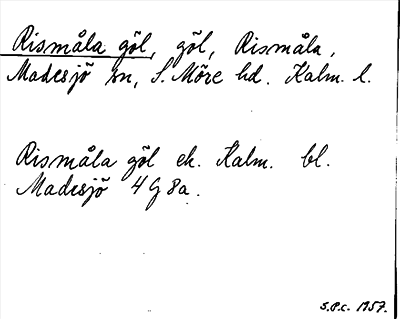 Rismåla göl, göl, Rismåla,
Madesjö sn, S. Möre hd. Kalm. l.
Rismåla göl ek. Kalm. bl.
Madesjö 4G8a.
S.P.C. 1957.